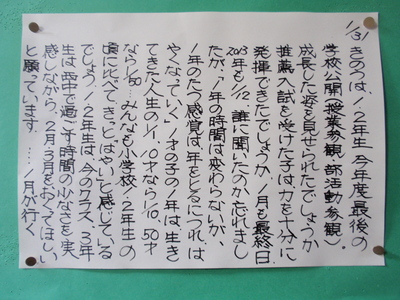 1/31
きのうは、1、2年生 今年度最後の
学校公開（授業参観、部活動参観）。
成長した姿を見せられたでしょうか
推薦入試を受けた子は力を十分に
発揮できたでしょうか。1月も最終日。
2013年も1/12。誰に聞いたのか忘れまし
たが、「1年の時間は変わらないが、
1年のたつ感覚は、年をとるにつれ、は
やくなっていく」1才の子の1年は、生き
てきた人生の1/1、10才なら1/10、50才
なら1/50…みんなも小学校1、2年生の
頃に比べて、きっとはやいと感じている
でしょう。1、2年生は今のクラス、3年
生は西中で過ごす時間の少なさを実
感しながら、2月3月をおくってほしい
と願っています…。1月が行く。